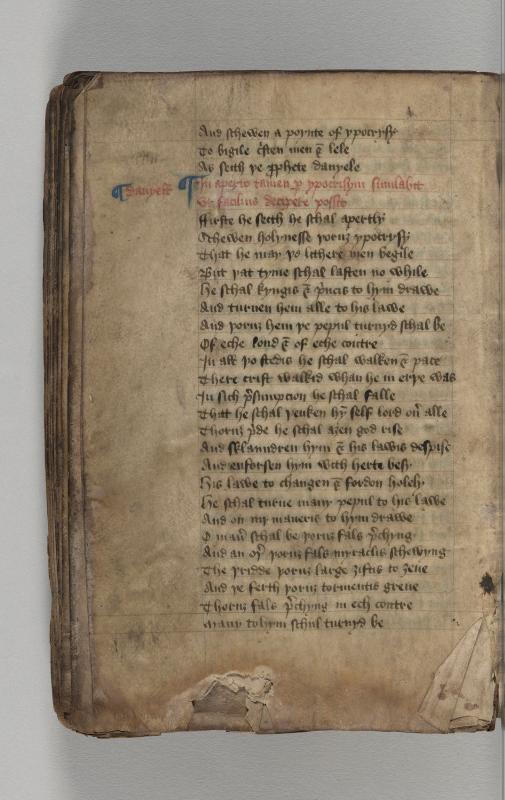 And schewen a poynte of ypocrysy
To bigile cͥsten men & lele
As seith þe ꝓphete danyele
danyell In aperto tamen ꝑ ypocrisym simulabit
Vt facilius decipere possit
ffirste he seith he schal apertly
Schewen holynesse þoruȝ ypocrysy
That he may þo lithere men begile
But þat tyme schal lasten no while
He schal kyngis & pͥncis to hym drawe
And turnen hem alle to his lawe
And þoruȝ hem þe pepul turnyd schal be
Of eche lond & of eche contre
In alle þo stedis he schal walken & pace
There crist walkid whan he in erþe was
In sich pͤsumpcion he schal falle
That he schal þenken hȳ self lord ouͤ alle
Thoruȝ pͥde he schal aȝen god rise
And sklaundren hym & his lawis despise
And enforsen hym with herte besy
His lawe to changen & fordon holely
He schal turne many pepul to his lawe
And on iiij maneris to hym drawe
O maneͬ schal be þoruȝ fals pͤchyng
And an oþͬ þoruȝ fals myraclis schewyng
The þridde þoruȝ large ȝiftis to ȝeue
And þe ferth þoruȝ tormentis greue
Thoruȝ fals pͤchyng in ech contre
Many to hym schul turnyd be